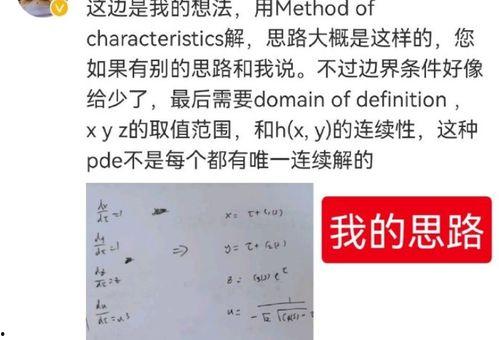 这边是我的想法，用Method of
characteristics解，思路大概是这样的，您
如果有别的思路和我说。不过边界条件好像
给少了，最后需要domain of definition，
x y z的取值范围，和h(x, y)的连续性，这种
pde不是每个都有唯一连续解的
dx/dτ =1
x= τ+
dy/dτ =1
⇒
y= τ+
dz/dτ =z
z=
du/dτ =u³
u=
我的思路